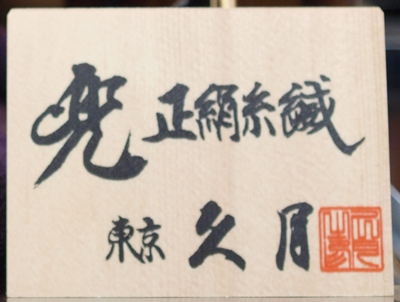 兜 正絹糸縅
東京 久月